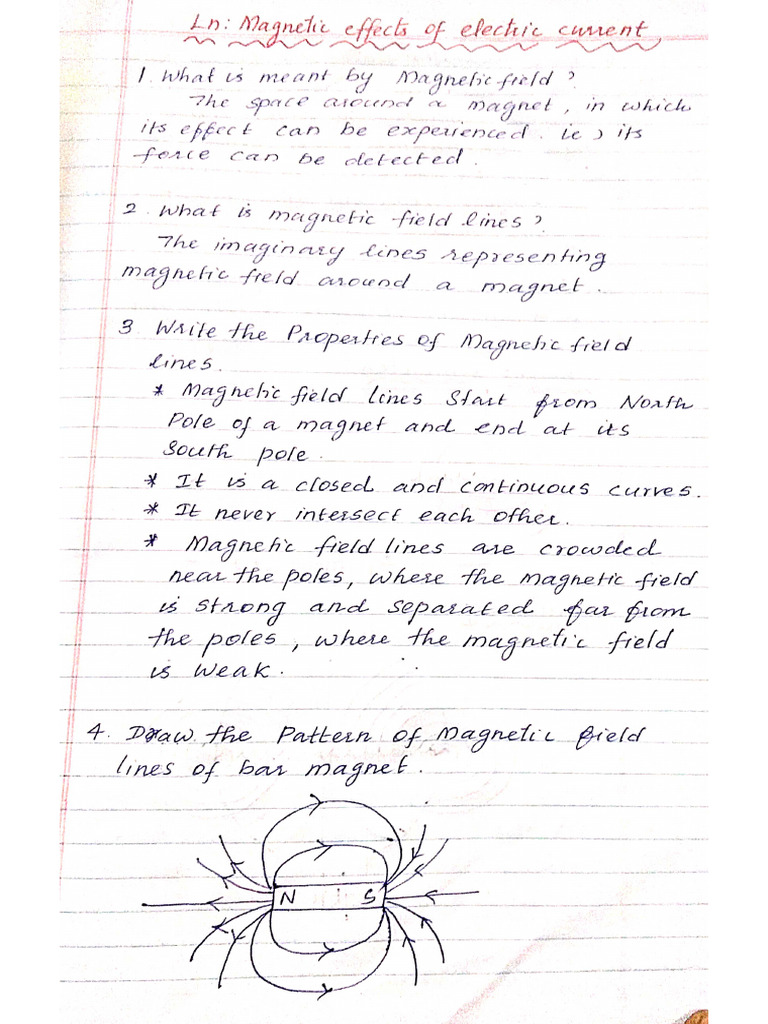 Ln: Magnetic effects of electric current
1. What is meant by Magnetic field?
The space around a magnet, in which
its effect can be experienced. ie, its
force can be detected.
2. What is magnetic field lines?
The imaginary lines representing
magnetic field around a magnet.
3 Write the Properties of Magnetic field
lines.
* Magnetic field lines start from North
Pole of a magnet and end at its
South pole.
* It is a closed and continuous curves.
* It never intersect each other.
* Magnetic field lines are crowded
near the poles, where the magnetic field
is strong and separated far from
the poles, where the magnetic field
is weak.
4. Draw the Pattern of Magnetic field
lines of bar magnet.
N S